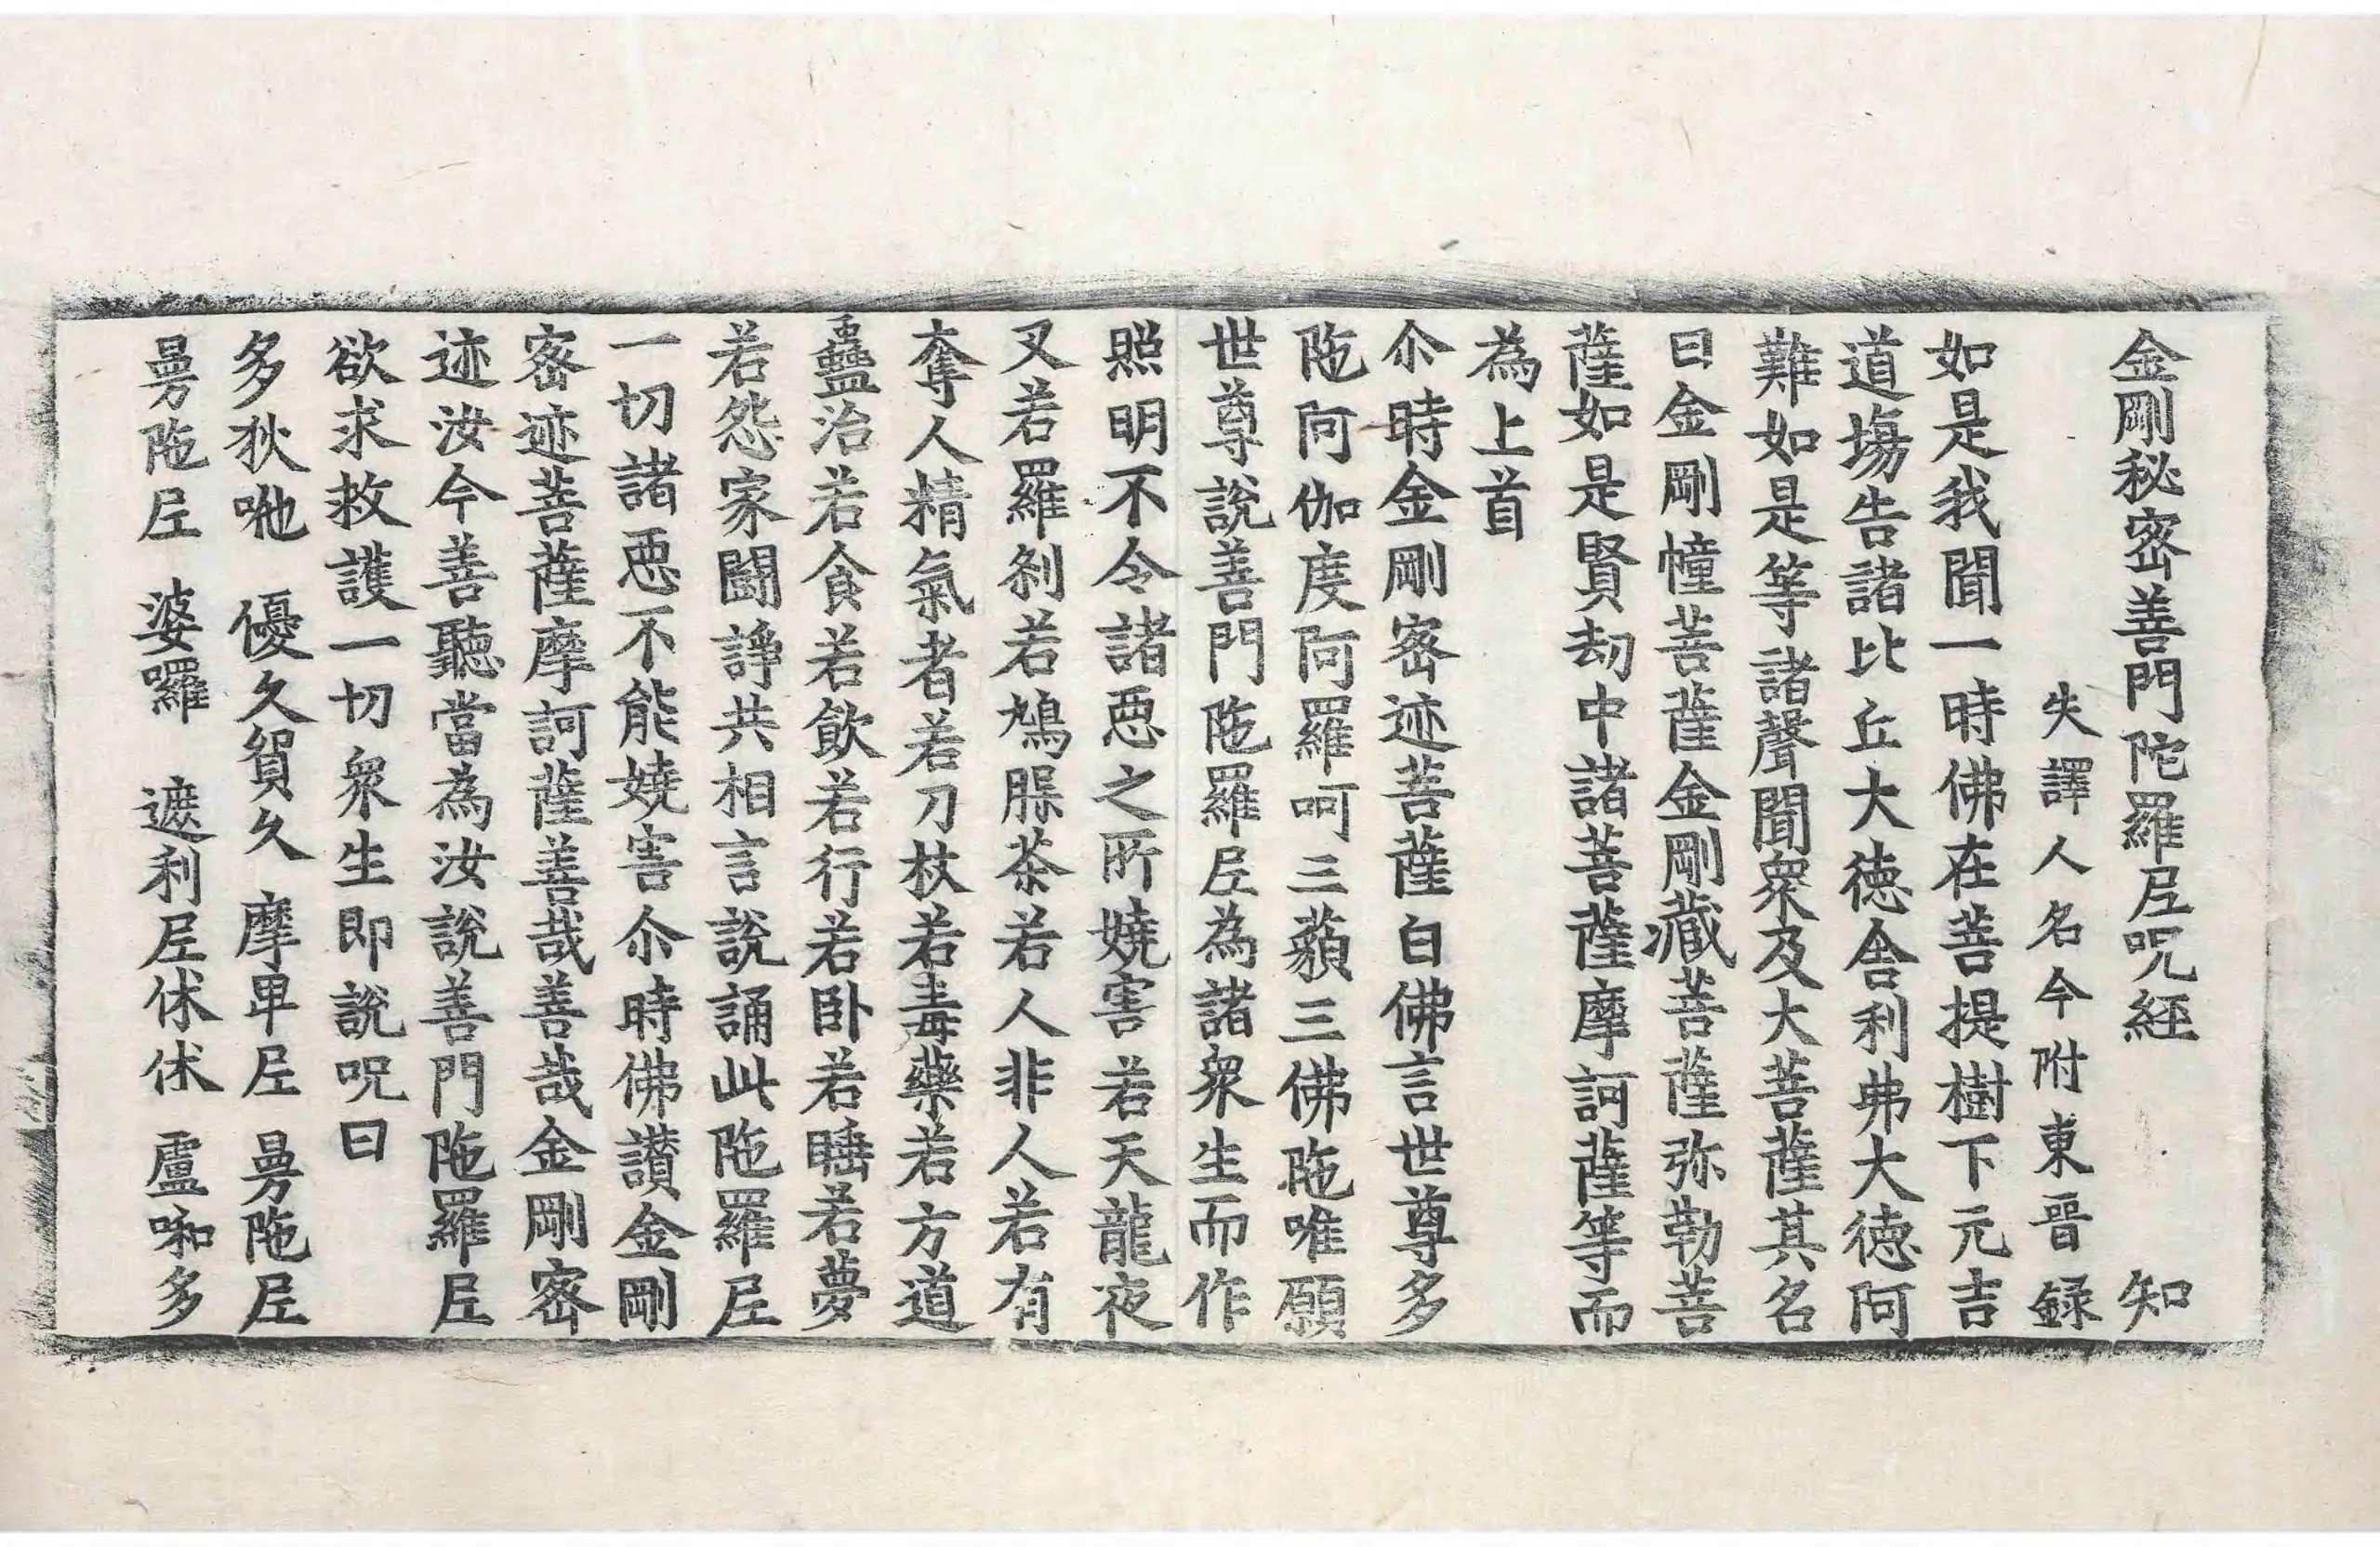 金剛秘密善門陀羅尼呪經 知
失譯人名今附東晉録
如是我聞一時佛在菩提樹下元吉
道塲告諸比丘大徳舍利弗大徳阿
難如是等諸聲聞衆及大菩薩其名
曰金剛幢菩薩金剛藏菩薩弥勒菩
薩如是賢劫中諸菩薩摩訶薩等而
為上首
尒時金剛宻迹菩薩白佛言世尊多
陁阿伽度阿羅呵三藐三佛陁唯願
世尊說善門陁羅尼為諸衆生而作
照明不令諸惡之所嬈害若天龍夜
叉若羅刹若鳩脲茶若人非人若有
奪人精氣者若刀杖若毒藥若方道
蠱治若食若飲若行若卧若睡若夢
若怨家鬪諍共相言說誦此陁羅尼
一切諸惡不能嬈害尒時佛讃金剛
宻迹菩薩摩訶薩善哉善哉金剛宻
迹汝今善聽當為汝說善門陁羅尼
欲求救護一切衆生即說呪曰
多狄呲 優久貿久 摩車尼 曼陁尼
曼陁尼 婆囉 遮利尼休休 盧啝多